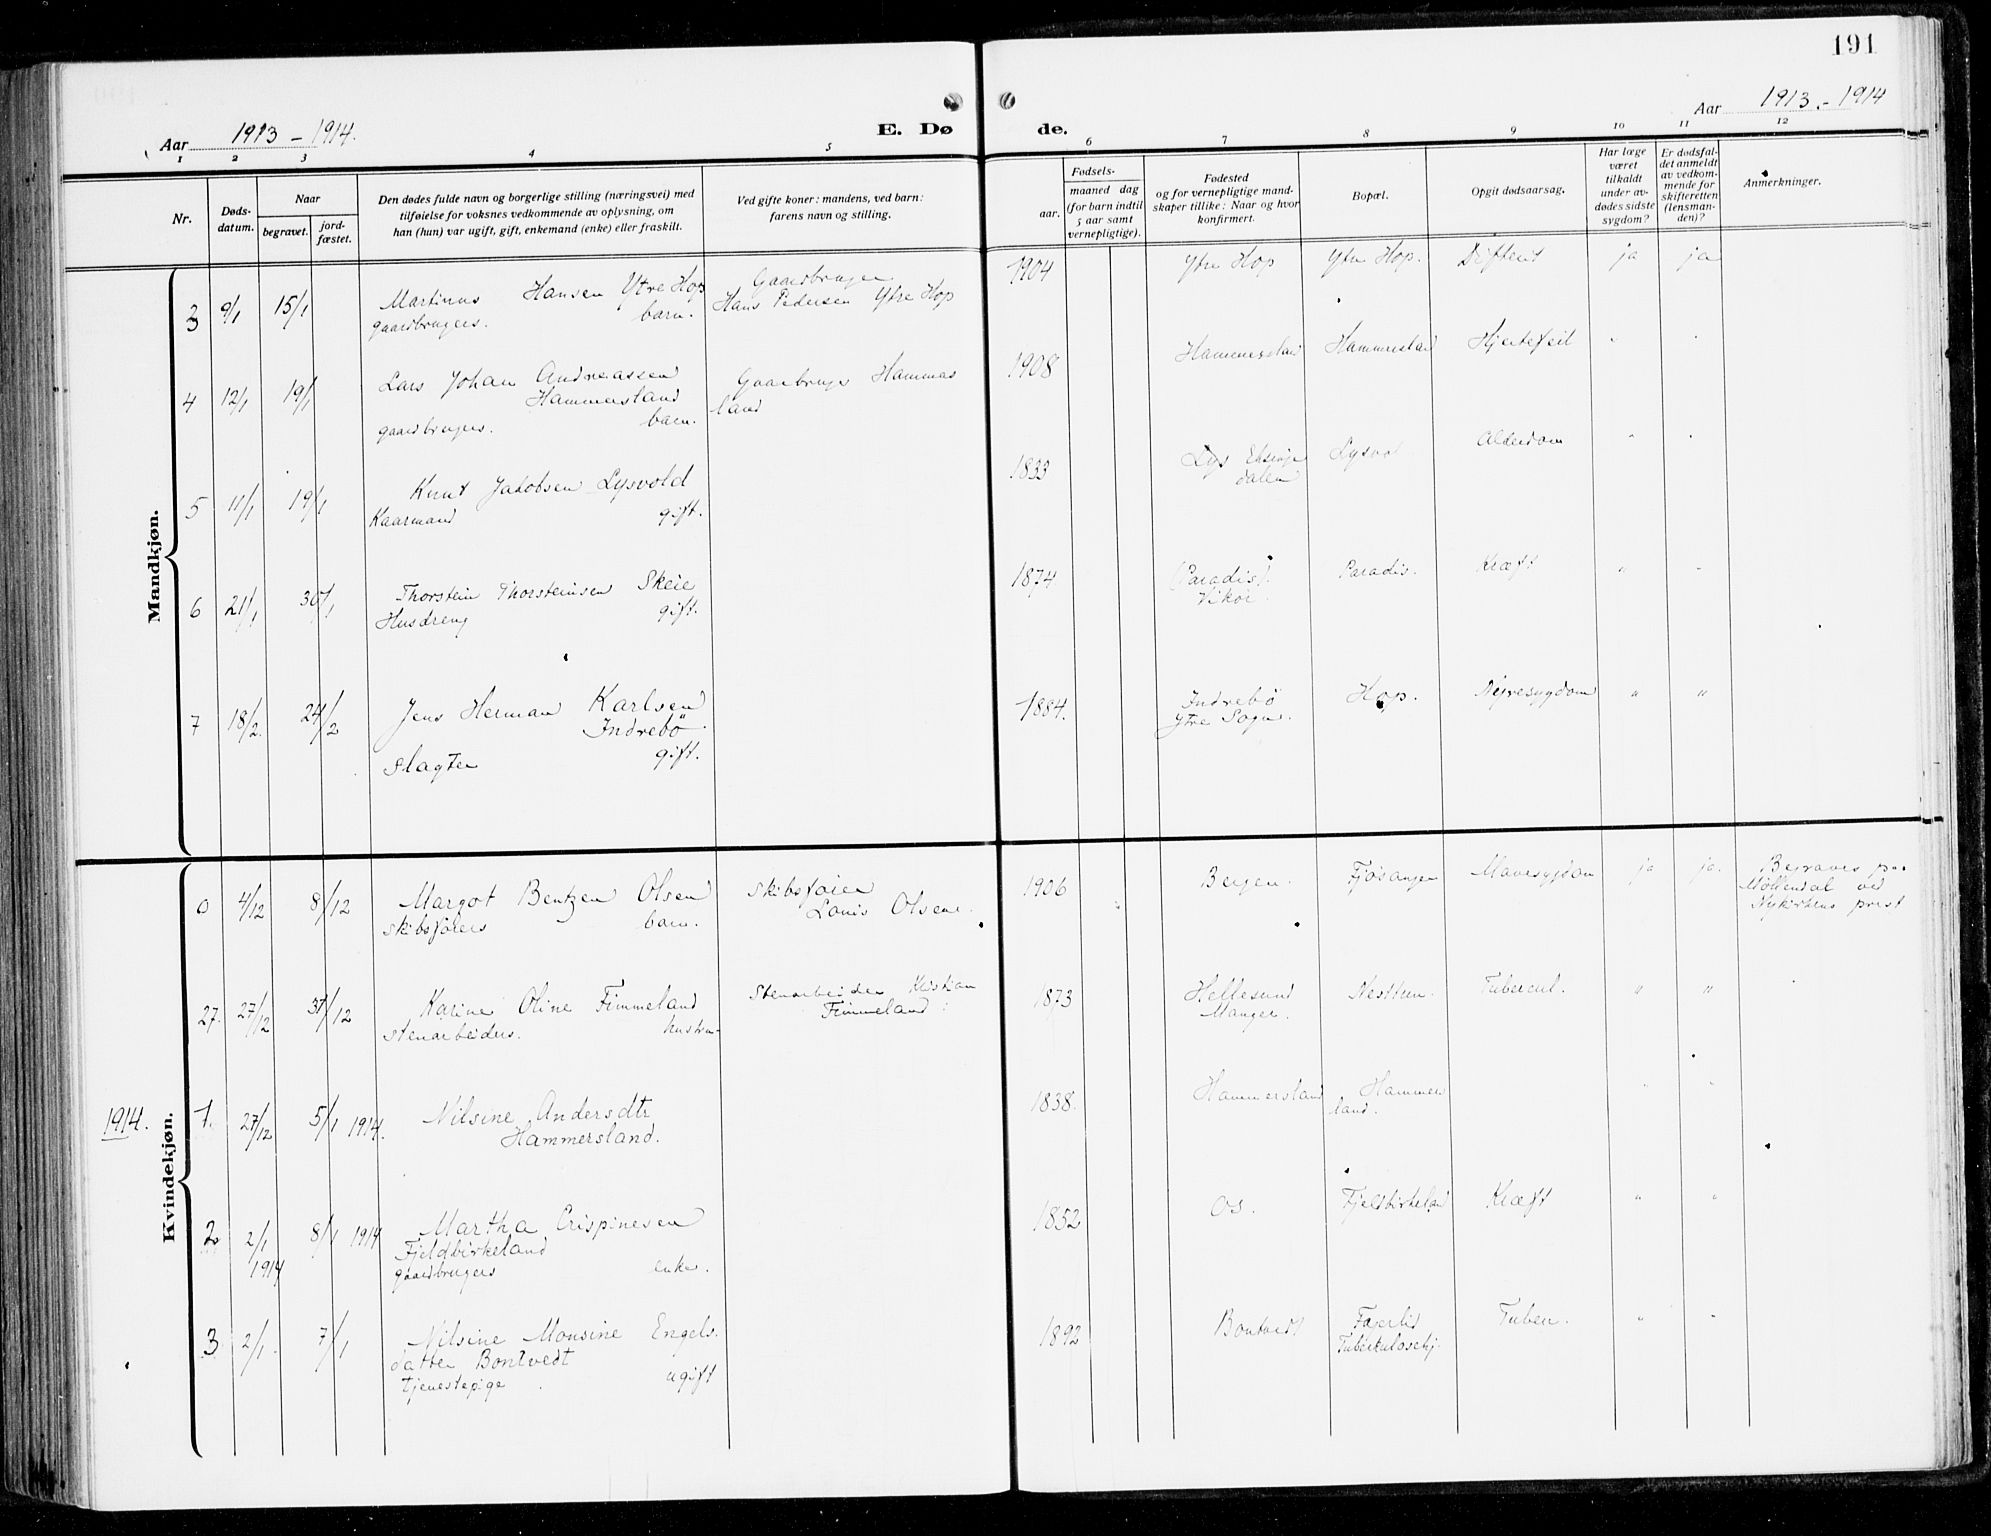 191
Aar 1913 - 1914.
E. Dø
de.
Aar 1913. - 1914
1 2 3 4 5 6 7 8 9 10 11 12
Nr.
Døds-
datum.
Naar
begravet.
jord-
fæstet.
Den dødes fulde navn og borgerlige stilling (næringsvei) med
tilføielse for voksnes vedkommende av oplysning, om
han (hun) var ugift, gift, enkemand (enke) eller fraskilt.
Ved gifte koner: mandens, ved barn:
farens navn og stilling.
Fødsels-
aar.
maaned dag
(for barn indtil
5 aar samt
vernepligtige).
Fødested
og for vernepligtige mand-
skaper tillike: Naar og hvor
konfirmert.
Bopæl.
Opgit dødsaarsag.
Har læge
været
tilkaldt
under av-
dødes sidste
sygdom?
Er dødsfal-
det anmeldt
av vedkom-
mende for
skifteretten
(lensman-
den)?
Anmerkninger.
Mandkjøn.
3 9/1 15/1 Martinus Hansen Ytre Hop
gaardbrugers. barn.
Gaardbruger
Hans Pedersen Ytre Hop
1904 Ytre Hop Ytre Hop. Difterit ja ja
4 12/1 19/1 Lars Johan Andreassen
Hammersland
gaardbrugers. barn.
Gaardbruger Hammers
land
1908 Hammersland Hammersland Hjertefeil " "
5 11/1 19/1 Knut Jakobsen Lysvold
Kaarmand gift.
1833 Lys Eksinge
dalen
Lysvo Alderdom " "
6 21/1 30/1 Thorstein Thorsteinsen Skeie
Husdreng gift.
1874 (Paradis).
Vikør.
Paradis. Kræft " "
7 18/2. 24/2 Jens Herman Karlsen
Indrebö
Slagter gift.
1884. Indrebö
Ytre Sogn.
Hop. Nyresygdom " "
Kvindekjøn.
0 4/12 8/12 Margot Bentzen Olsen
skibsføiers barn.
Skibsføier
Louis Olsen.
1906 Bergen. Fjøsanger Mavesygdom ja ja.
Begraves paa
Møllendal ved
Nykirkens prest
27. 27/12 31/12 Karine Oline Fimmeland
stenarbeiders. hustru
Stenarbeider Kristian
Fimmeland.
1873 Hellesund
Manger.
Nesttun. Tubercul. " "
1914. 1. 27/12 5/1 1914. Nilsine Andersdtr
Hammersland.
1838. Hammersland Hammers
land.
" "
2 2/1
1914
8/1 1914 Martha Crispinesen
Fjeldbirkeland
gaardbrugers enke.
1852 Os. Fjeldbirkeland Kræft " "
3 2/1. 7/1 Nilsine Monsine Engels.
datter Bontvedt
tjenestepige. ugift
1892 Bontvedt Fagerlid
Tuberkulosehj. Tuber. " "